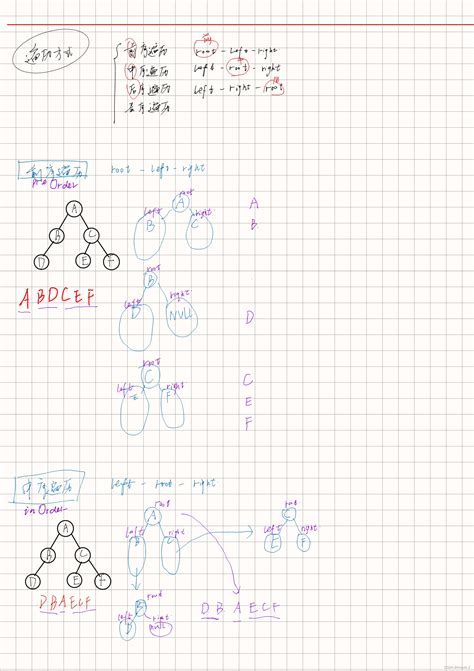 遍历方式
前序遍历 root - left - right
中序遍历 left - root - right
后序遍历 left - right - root
层序遍历
前
中
后
前序遍历 root - left - right
preOrder
A
B C
D E F
ABDCEF
root
A
left right
B C
A
B
root
B
left right
D NULL
D
root
C
left right
E F
C
E
F
中序遍历 left - root - right
inOrder
A
B C
D E F
DBAECF
root
A
left right
B C
root
C
left right
E F
root
B
left right
D null
DB A ECF